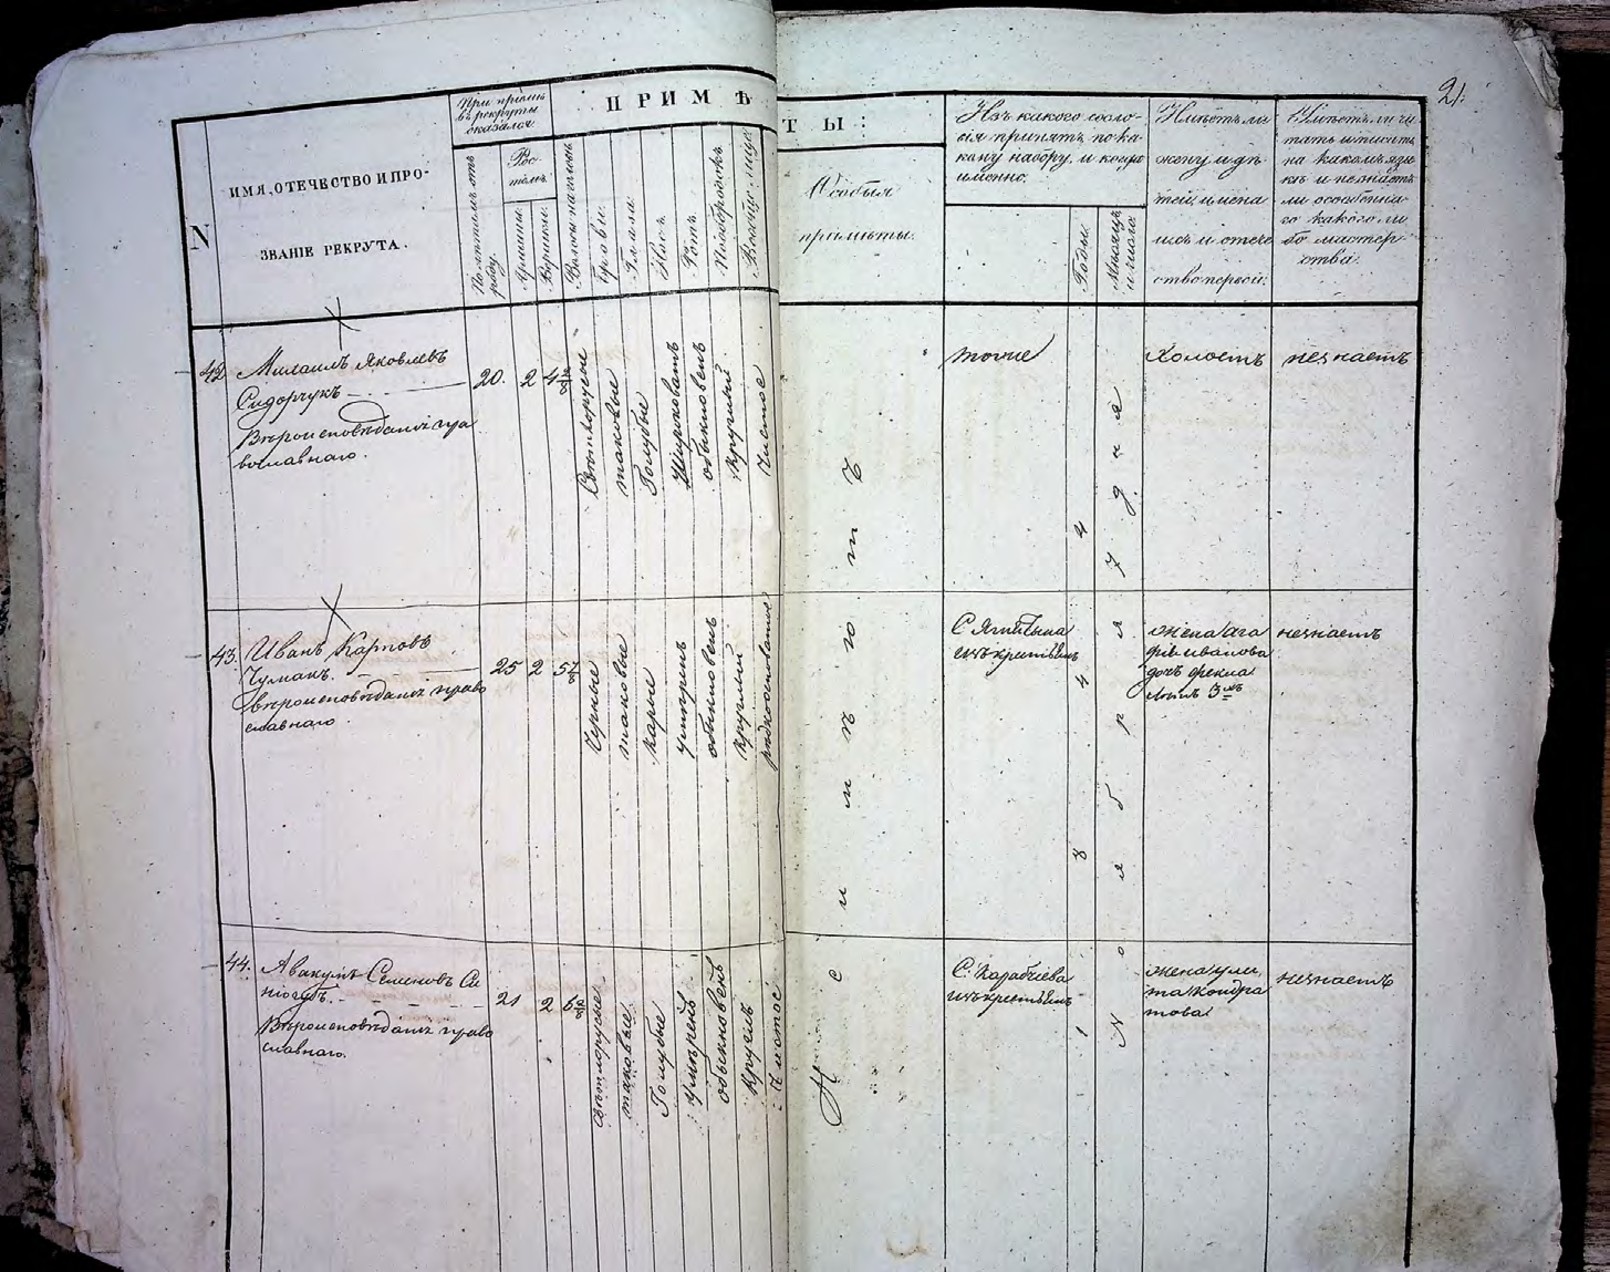 21.
При приемѣ
въ рекруты
оказался.
ПРИМѢ
ТЫ:
N
ИМЯ, ОТЕЧЕСТВО И ПРО-
ЗВАНІЕ РЕКРУТА.
По лѣтамъ отъ
роду.
Рос-
томъ.
Аршины.
Вершки.
Волосы на головѣ
Брови.
Глаза.
Носъ.
Ротъ.
Подбородокъ
Вообще лицо
Особыя
примѣты.
Изъ какого сосло-
вія принятъ, по ка-
кому набору, и когда
именно.
Годы.
Мѣсяцъ
и число.
Имѣетъ ли
жену и дѣ-
тей, имена
ихъ и отече
ство первой.
Умѣетъ ли чи
тать и писать
на какомъ язы
кѣ и не знаетъ
ли особенна-
го какого ли
бо мастер-
ства.
42
Михаилъ Яковлевъ
Сидорчукъ
Вѣроисповѣданія пра
вославнаго.
20.
2
4
Свѣтлорусые
таковые
Голубые
Широковатъ
обыкновенъ
Круглый
Чистое
тоже
Холостъ
незнаетъ
43.
Иванъ Карповъ
Чумакъ.
Вѣроисповѣданія право
славнаго.
25
2
5
Черные
таковые
Карые
умѣренъ
обыкновенъ
круглый
рядкосповатое
С.
изъ крестьянъ
жена Ага
фія иванова
дочь фекла
лѣтъ 3хъ
незнаетъ
44.
Авакумъ Семеновъ Си
ніогубъ.
Вѣроисповѣданія право
славнаго.
21
2
6
Свѣтлорусые
таковые
Голубые
умѣренъ
обыкновенъ
Круглъ
Чистое
С. Карабчиева
изъ крестьянъ
жена ули
та кондра
това
незнаетъ
Не имѣютъ
1844
Ноября 7 дня